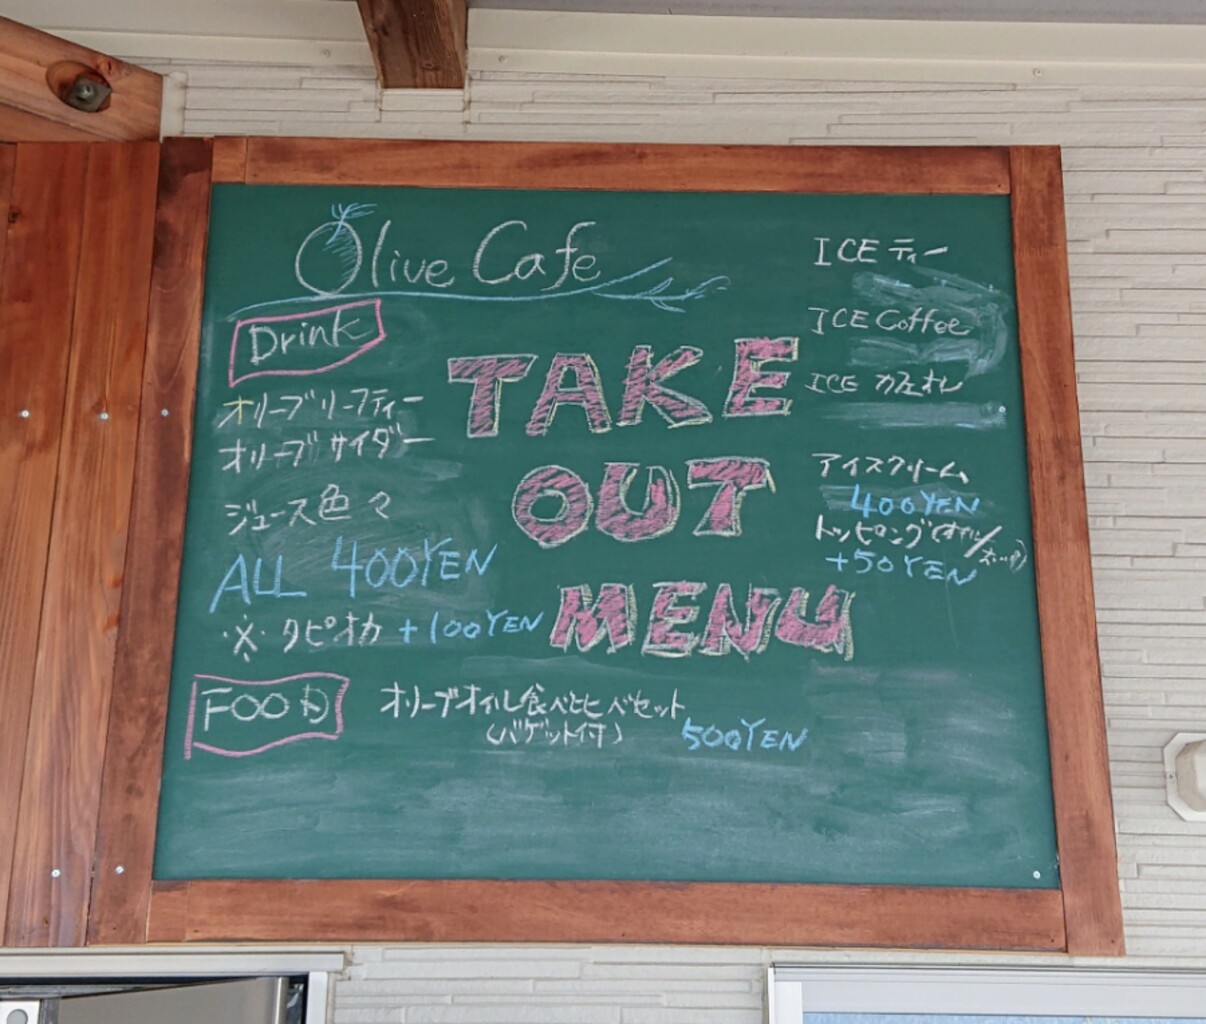 Olive Cafe
Drink
オリーブリーフティー
オリーブサイダー
ジュース色々
ALL 400YEN
※ タピオカ +100YEN
TAKE
OUT
MENU
ICE ティー
ICE Coffee
ICE カフェオレ
アイスクリーム
400YEN
トッピング(オイル/
+50YEN
FOOD
オリーブオイル食べ比べセット
(バゲット付)
500YEN